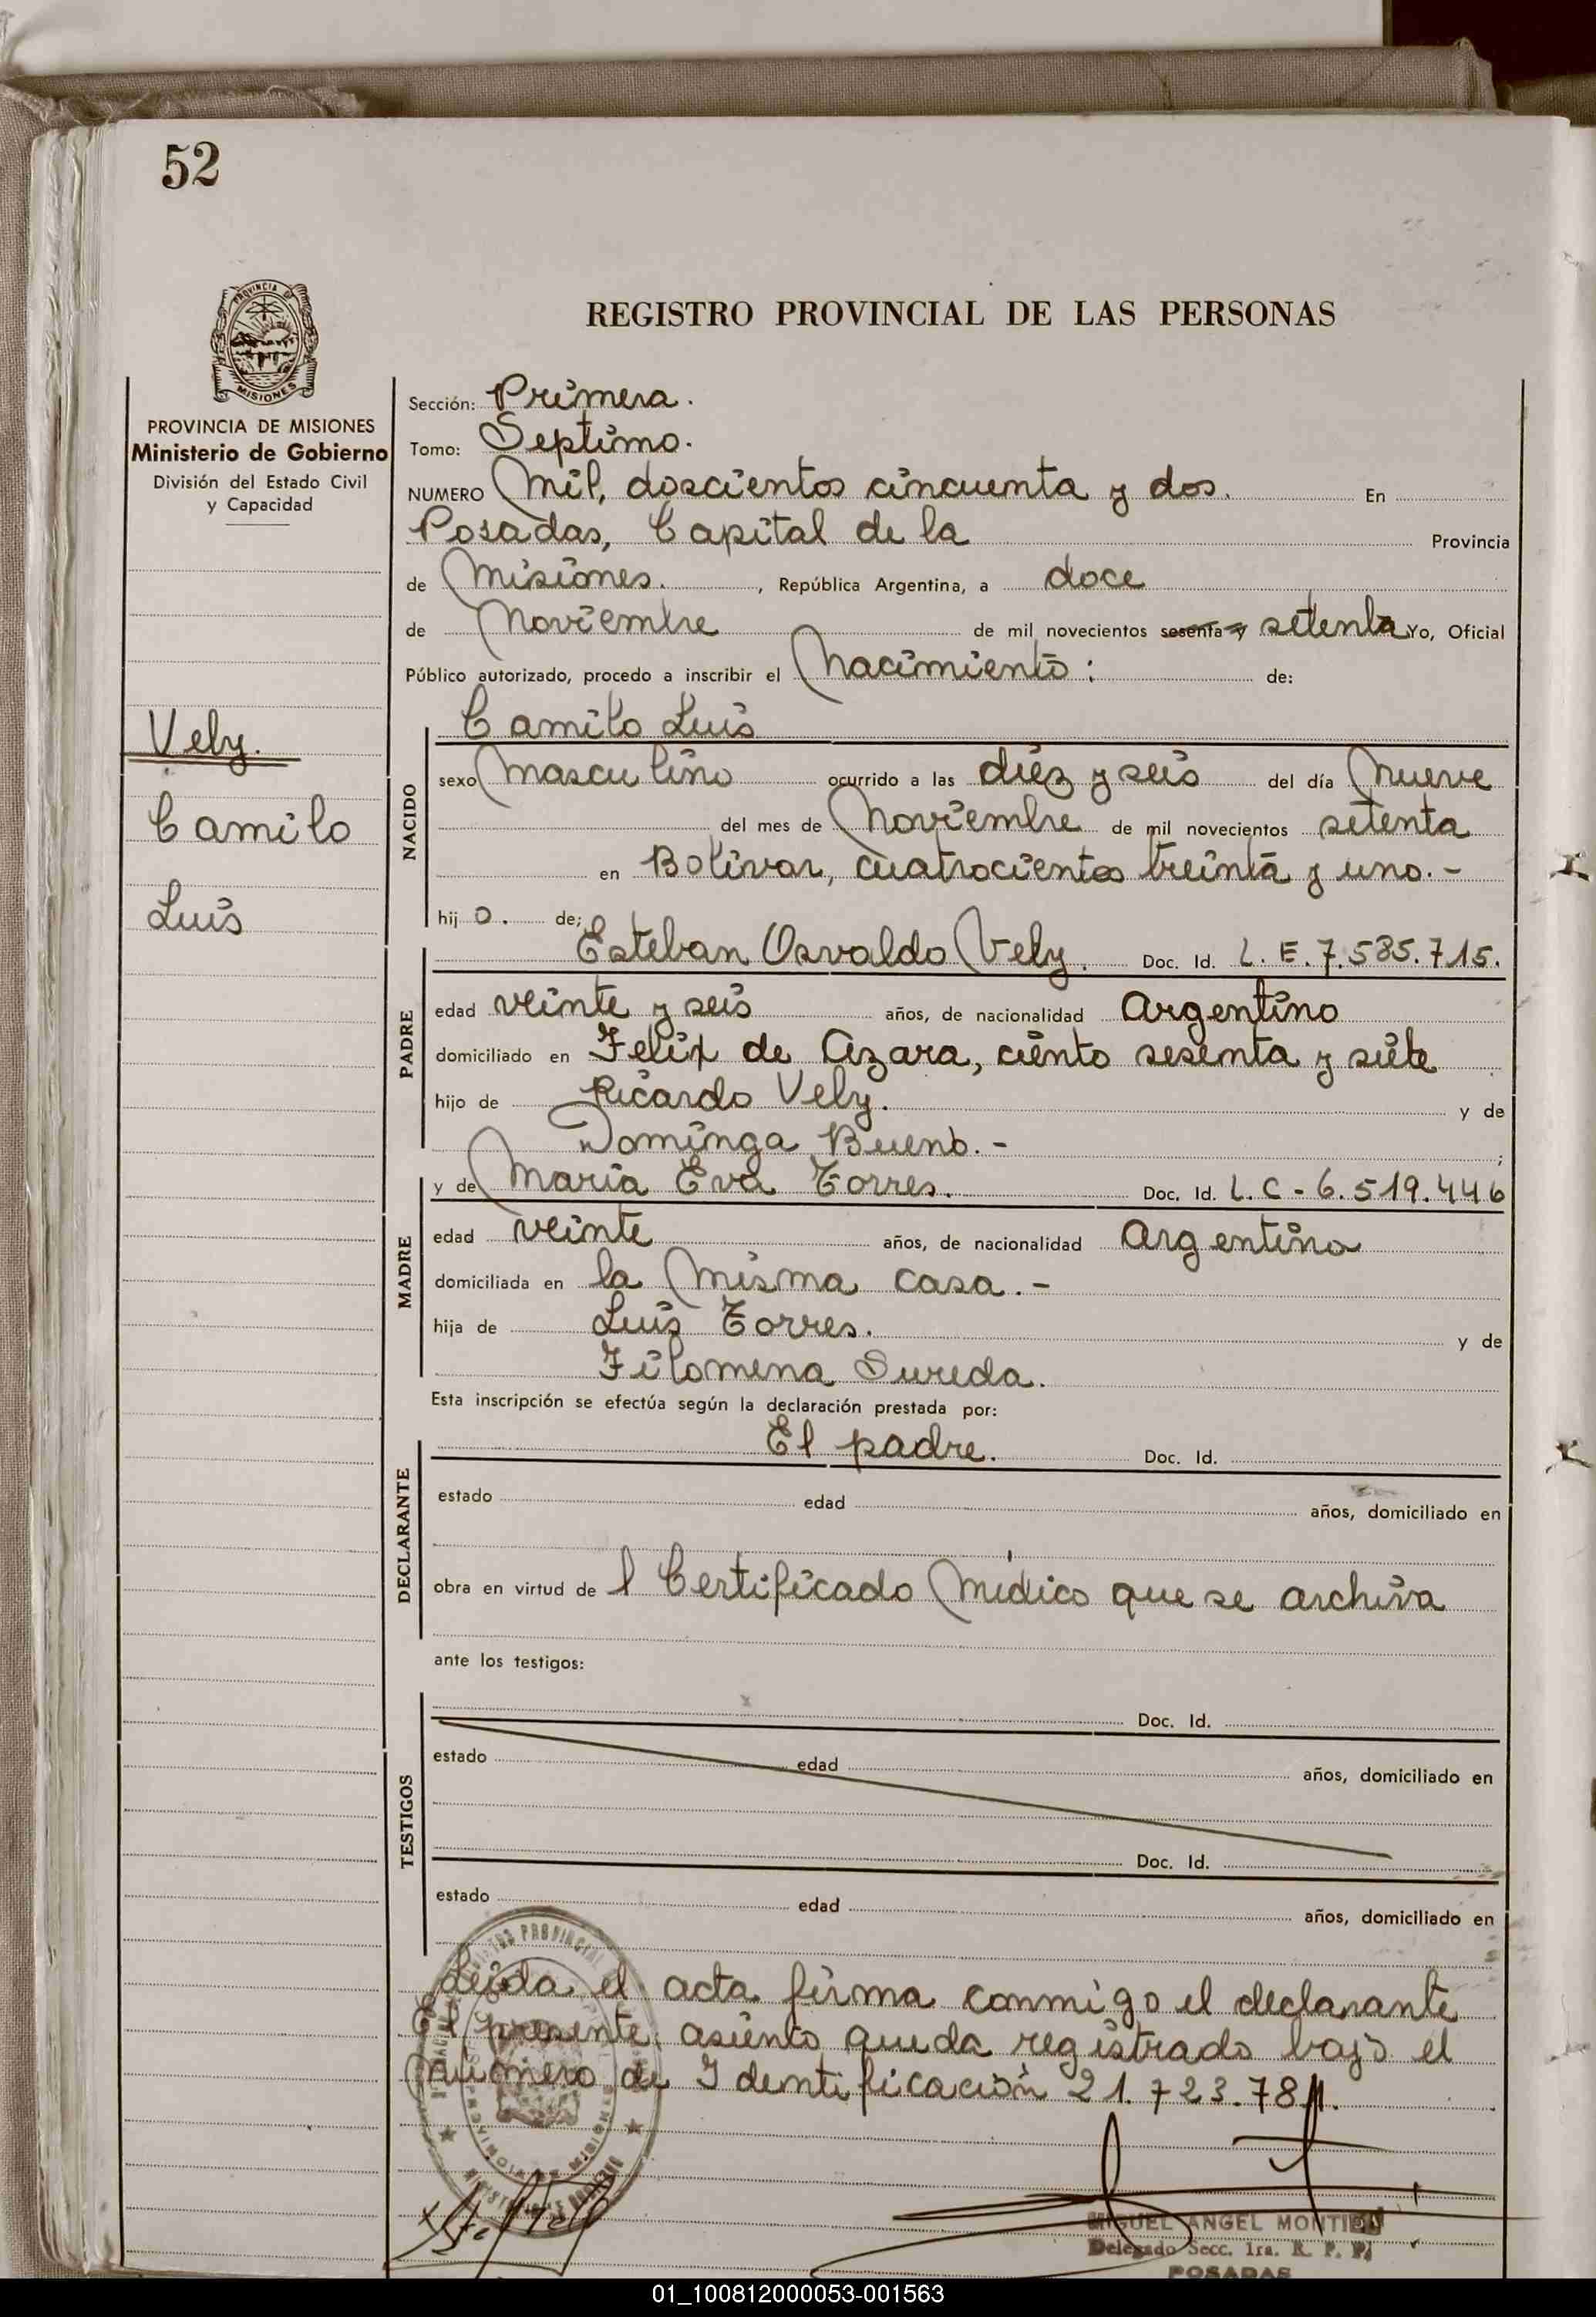 52
PROVINCIA DE
MISIONES
REGISTRO PROVINCIAL DE LAS PERSONAS
PROVINCIA DE MISIONES
Ministerio de Gobierno
División del Estado Civil
y Capacidad
Vely.
Camilo
Luis
Sección: Primera.
Tomo: Septimo.
NUMERO Mil, doscientos cincuenta y dos. En
Posadas, Capital de la Provincia
de Misiones. , República Argentina, a doce
de Noviembre de mil novecientos sesenta y setenta Yo, Oficial
Público autorizado, procedo a inscribir el Nacimiento: de:
Camilo Luis
NACIDO
sexo Masculino ocurrido a las diez y seis del día Nueve
del mes de Noviembre de mil novecientos setenta
en Bolivar, cuatrocientos treinta y uno. -
hij o. de;
PADRE
Esteban Osvaldo Vely. Doc. Id. L. E. 7.585.715.
edad veinte y seis años, de nacionalidad Argentino
domiciliado en Felix de Azara, ciento sesenta y siete
hijo de Ricardo Vely. y de
Dominga Bueno. - ;
MADRE
y de Maria Eva Torres. Doc. Id. L. C - 6.519.446
edad veinte años, de nacionalidad Argentina
domiciliada en la Misma casa. -
hija de Luis Torres. y de
Filomena Sureda.
Esta inscripción se efectúa según la declaración prestada por:
DECLARANTE
El padre. Doc. Id.
estado edad años, domiciliado en
obra en virtud de l Certificado Médico que se archiva
ante los testigos:
TESTIGOS
Doc. Id.
estado edad años, domiciliado en
Doc. Id.
estado edad años, domiciliado en
Leida el acta firma conmigo el declarante
El presente asiento queda registrado bajo el
Número de Identificación 21.723.781.
MIGUEL ANGEL MONTIEL
Delegado Secc. 1ra. R. P. P.
POSADAS
01_100812000053-001563